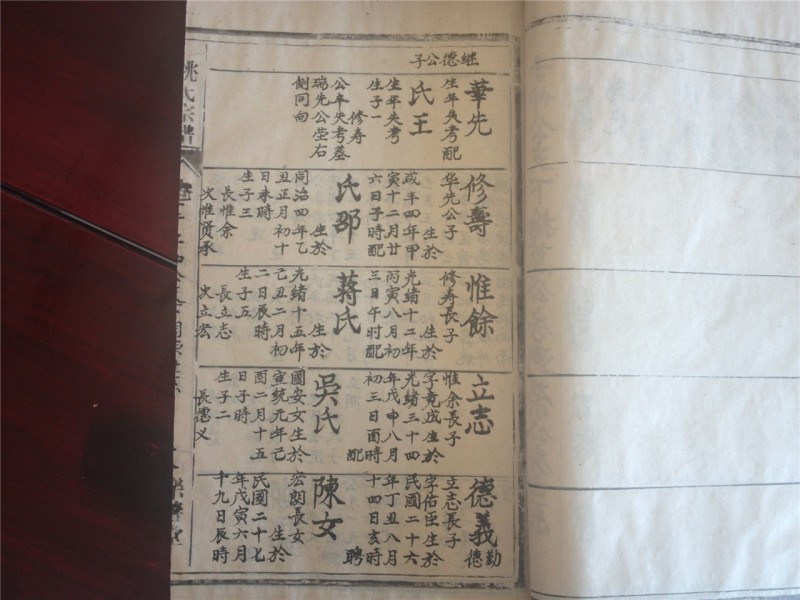 继德公子
華先
生年失考配
氏王
生年失考
生子一
修寿
公年失考墓
瑞先公莹右
側同向
修壽
华先公子
生於
咸丰四年甲
寅十二月廿
六日子時配
氏邵
生於
同治四年乙
丑正月初十
日未時
生子三
長惟余
次惟贤承
惟餘
修寿長子
生於
光緒十二年
丙寅八月初
三日午时配
蒋氏
生於
光緒十五年
己丑二月初
二日辰時
生子五
長立志
次立宏
立志
惟余長子
字竟成生於
光緒三十四
年戊申八月
初三日酉時
配
吳氏
國安女生於
宣統元年己
酉二月十五
日子時
生子二
長德义
德義
勤德
立志長子
字佑臣生於
民國二十六
年丁丑八月
十四日亥時
聘
陳女
宏朗長女
生於
民國二十七
年戊寅六月
十九日辰時
姚氏宗譜